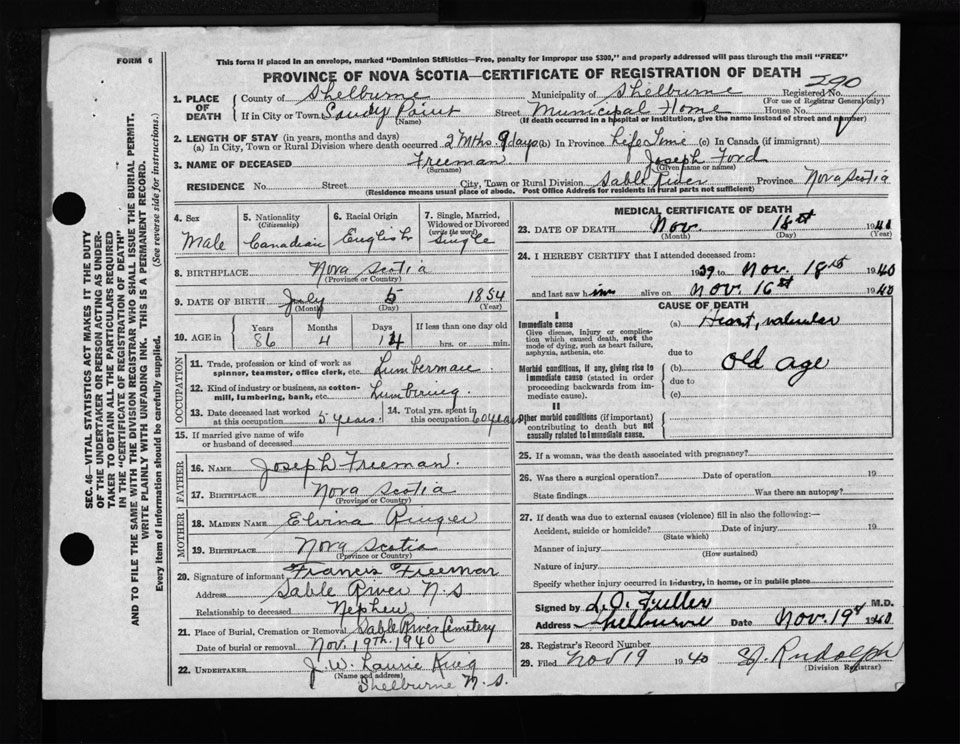 FORM 6
This form if placed in an envelope, marked "Dominion Statistics—Free, penalty for improper use $300," and properly addressed will pass through the mail "FREE"
PROVINCE OF NOVA SCOTIA—CERTIFICATE OF REGISTRATION OF DEATH
290
1. PLACE OF DEATH
County of Shelburne Municipality of Shelburne Registered No.
(For use of Registrar General only)
If in City or Town Sandy Point Street Municipal Home House No.
(Name) (If death occurred in a hospital or institution, give the name instead of street and number)
2. LENGTH OF STAY (in years, months and days)
(a) In City, Town or Rural Division where death occurred 2 Mths. 9 days (b) In Province Life Time (c) In Canada (if immigrant)
3. NAME OF DECEASED Freeman Joseph Ford
(Surname) (Given name or names)
RESIDENCE No. Street City, Town or Rural Division Sable River Province Nova Scotia
(Residence means usual place of abode. Post Office Address for residents in rural parts not sufficient)
SEC. 46—VITAL STATISTICS ACT MAKES IT THE DUTY
OF THE UNDERTAKER OR PERSON ACTING AS UNDER-
TAKER TO OBTAIN ALL THE PARTICULARS REQUIRED
IN THE "CERTIFICATE OF REGISTRATION OF DEATH"
AND TO FILE THE SAME WITH THE DIVISION REGISTRAR WHO SHALL ISSUE THE BURIAL PERMIT.
WRITE PLAINLY WITH UNFADING INK. THIS IS A PERMANENT RECORD.
Every item of information should be carefully supplied. (See reverse side for instructions.)
4. Sex
Male
5. Nationality
(Citizenship)
Canadian
6. Racial Origin
English
7. Single, Married,
Widowed or Divorced
(write the word)
Single
8. BIRTHPLACE Nova Scotia
(Province or Country)
9. DATE OF BIRTH July 5 1854
(Month) (Day) (Year)
10. AGE in
Years Months Days If less than one day old
86 4 14 hrs. or min.
OCCUPATION
11. Trade, profession or kind of work as
spinner, teamster, office clerk, etc. Lumberman
12. Kind of industry or business, as cotton-
mill, lumbering, bank, etc. Lumbering.
13. Date deceased last worked
at this occupation 5 years.
14. Total yrs. spent in
this occupation 60 years
15. If married give name of wife
or husband of deceased
FATHER
16. NAME Joseph Freeman.
17. BIRTHPLACE Nova Scotia
(Province or Country)
MOTHER
18. MAIDEN NAME Elvina Ringer
19. BIRTHPLACE Nova Scotia
(Province or Country)
20. Signature of informant Francis Freeman
Address Sable River N.S
Relationship to deceased Nephew
21. Place of Burial, Cremation or Removal Sable River Cemetery
Date of burial or removal Nov. 19th. 1940
22. UNDERTAKER J. W. Laurie King
(Name and address)
Shelburne N.S.
MEDICAL CERTIFICATE OF DEATH
23. DATE OF DEATH Nov. 18th 1940
(Month) (Day) (Year)
24. I HEREBY CERTIFY that I attended deceased from:
1939 to Nov. 18th 1940
and last saw him alive on Nov. 16th 1940
CAUSE OF DEATH
I
Immediate cause
Give disease, injury or complica-
tion which caused death, not the
mode of dying, such as heart failure,
asphyxia, asthenia, etc
(a) Heart, valvular
due to
Morbid conditions, if any, giving rise to
immediate cause (stated in order
proceeding backwards from im-
mediate cause).
(b) Old Age
due to
(c)
II
Other morbid conditions (if important)
contributing to death but not
causally related to immediate cause.
25. If a woman, was the death associated with pregnancy?
26. Was there a surgical operation? Date of operation 19
State findings Was there an autopsy?
27. If death was due to external causes (violence) fill in also the following:—
Accident, suicide or homicide? Date of injury 19
(State which)
Manner of injury
(How sustained)
Nature of injury
Specify whether injury occurred in industry, in home, or in public place
Signed by L.O. Fuller M.D.
Address Shelburne Date Nov. 19th 1940
28. Registrar's Record Number
29. Filed Nov 19 1940 Rudolph
(Division Registrar)